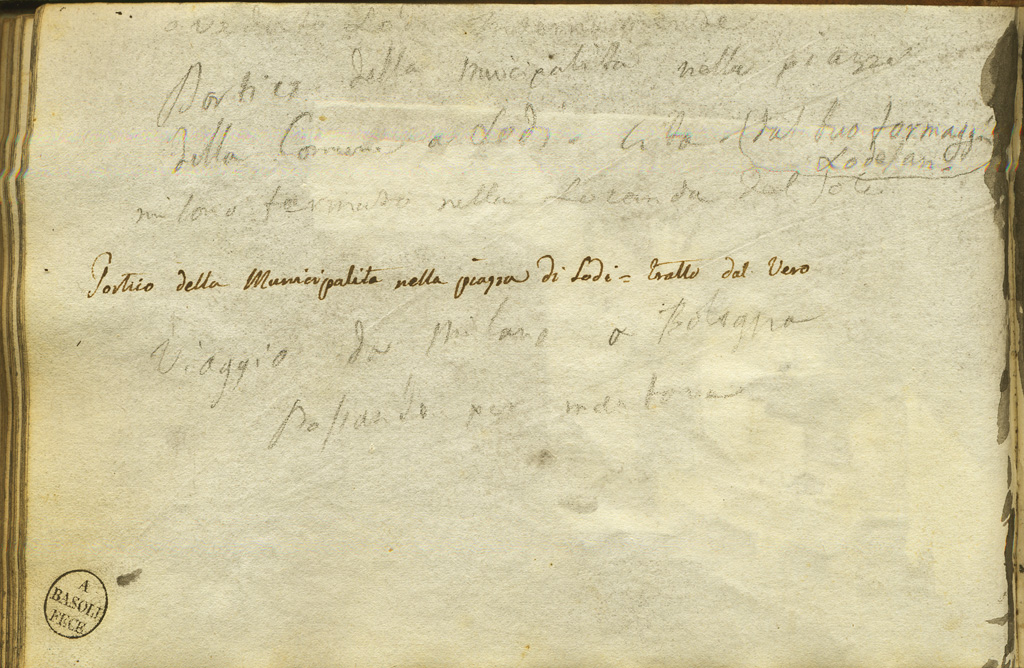 a veduto Lodi internamente
Portico della Municipalita nella piazza
della Comune a Lodi - cita (dal buo formaggi
Lodesan
mi sono fermato nella Locanda del Sole
Portico della Municipalita nella piazza di Lodi = tratto dal Vero
Viaggio da Milano a Bologna
Passando per mantova
A
BASOLI
FECE